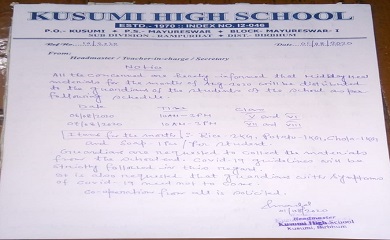 KUSUMI HIGH SCHOOL
ESTD.- 1970 : INDEX NO. I2-046
P.O.- KUSUMI ♦ P.S.- MAYURESWAR ♦ BLOCK- MAYURESWAR- I
SUB DIVISION - RAMPURHAT ♦ DIST. BIRBHUM
Ref. No. Date 05/08/2020
From:
Headmaster / Teacher-in-charge / Secretary
Notice
All the concerned are hereby informed that midday meal
materials for the month of will be distributed
to the guardians of the students of the school as per
following schedule.
Date Time Class
06/08/2020 10AM - 2PM V and VI
07/08/2020 10AM - 2PM
[Items for the month : Rice - 2KG, Potato - 1KG, Chola - 1KG
and Soap - 1 Pc / Per Student
Guardians are requested to collect the materials
from the school and Covid-19 guidelines will be
strictly followed in this regard.
It is also requested that guardians with symptoms
of Covid-19 need not to come.
Co-operation from all is solicited.
Headmaster
Kusumi High School
Kusumi, Birbhum